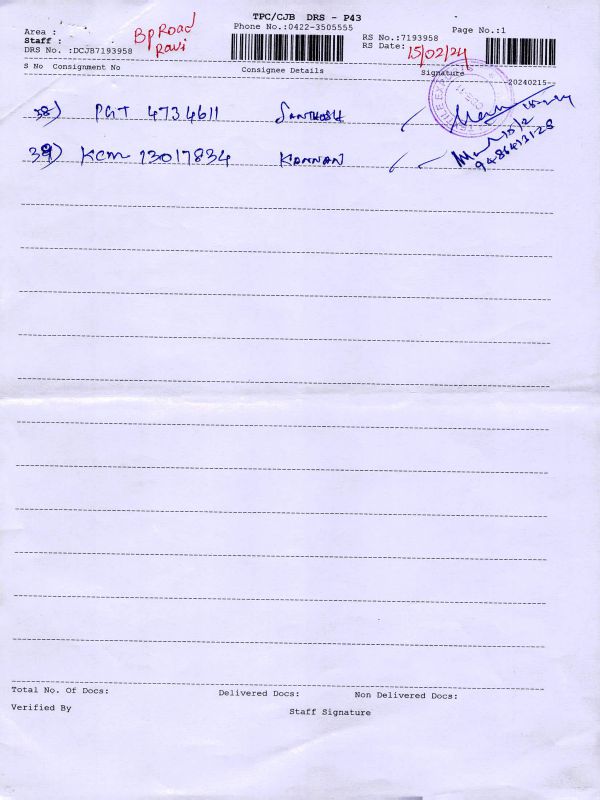 TPC/CJB DRS - P43
Phone No.:0422-3505555
Area : BP Road
Staff : Ravi
DRS No. :DCJB7193958
RS No.:7193958
RS Date: 15/02/24
Page No.:1
S No Consignment No Consignee Details Signature
20240215
38) PGT 4734611 SANTHOSH
39) KCM 13017834 KANNAN
15/2
9486413128
Total No. Of Docs: Delivered Docs: Non Delivered Docs:
Verified By Staff Signature